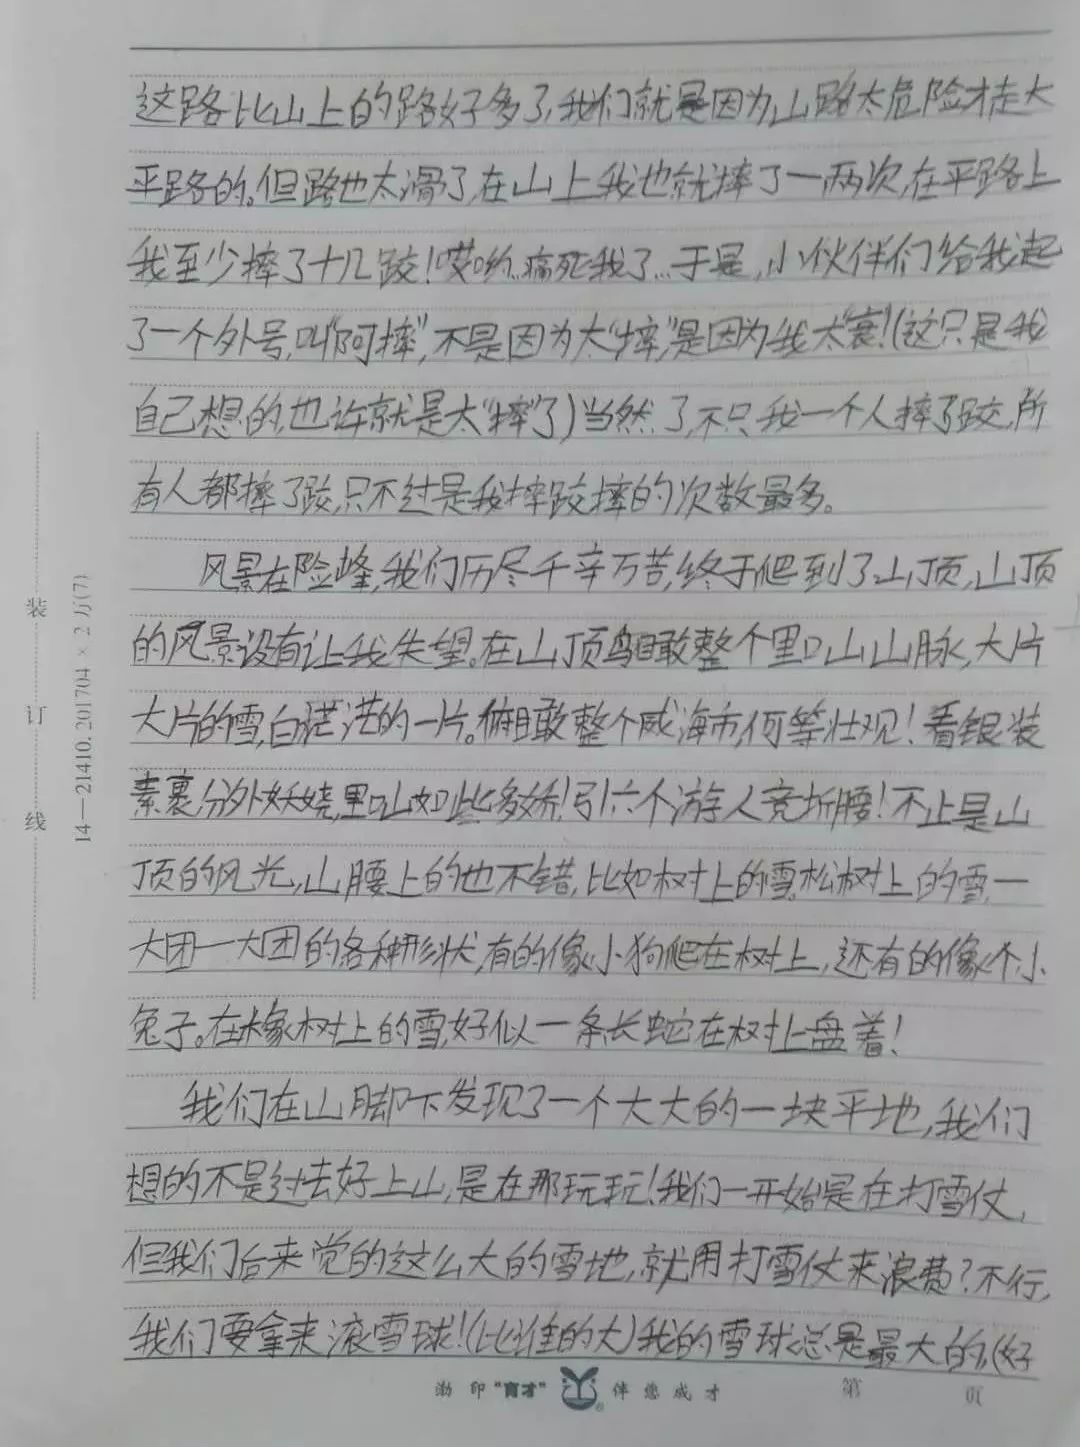 这路比山上的路好多了,我们就是因为山路太危险才走大
平路的。但路也太滑了,在山上我也就摔了一两次,在平路上
我至少摔了十几跤!哎哟,痛死我了…于是,小伙伴们给我起
了一个外号,叫“阿摔”,不是因为太“摔”,是因为我太“衰”!(这只是我
自己想的,也许就是太“摔”了)当然了,不只我一个人摔了跤,所
有人都摔了跤,只不过是我摔跤摔的次数最多。
风景在险峰,我们历尽千辛万苦,终于爬到了山顶,山顶
的风景没有让我失望。在山顶鸟瞰整个里口山山脉,大片
大片的雪,白茫茫的一片。俯瞰整个威海市,何等壮观!看银装
素裹,分外妖娆,里口山如此多娇!引六个游人竞折腰!不止是山
顶的风光,山腰上的也不错,比如树上的雪,松树上的雪,一
大团一大团的各种形状,有的像小狗爬在树上,还有的像个小
兔子。在橡树上的雪,好似一条长蛇在树上盘着!
我们在山脚下发现了一个大大的一块平地,我们
想的不是过去好上山,是在那玩玩!我们一开始是在打雪仗,
但我们后来觉的这么大的雪地,就用打雪仗来浪费?不行,
我们要拿来滚雪球!(比谁的大)我的雪球总是最大的,(好
装
订
线
14—21410.201704×2万(7)
渤印“育才” 伴您成才 第 页